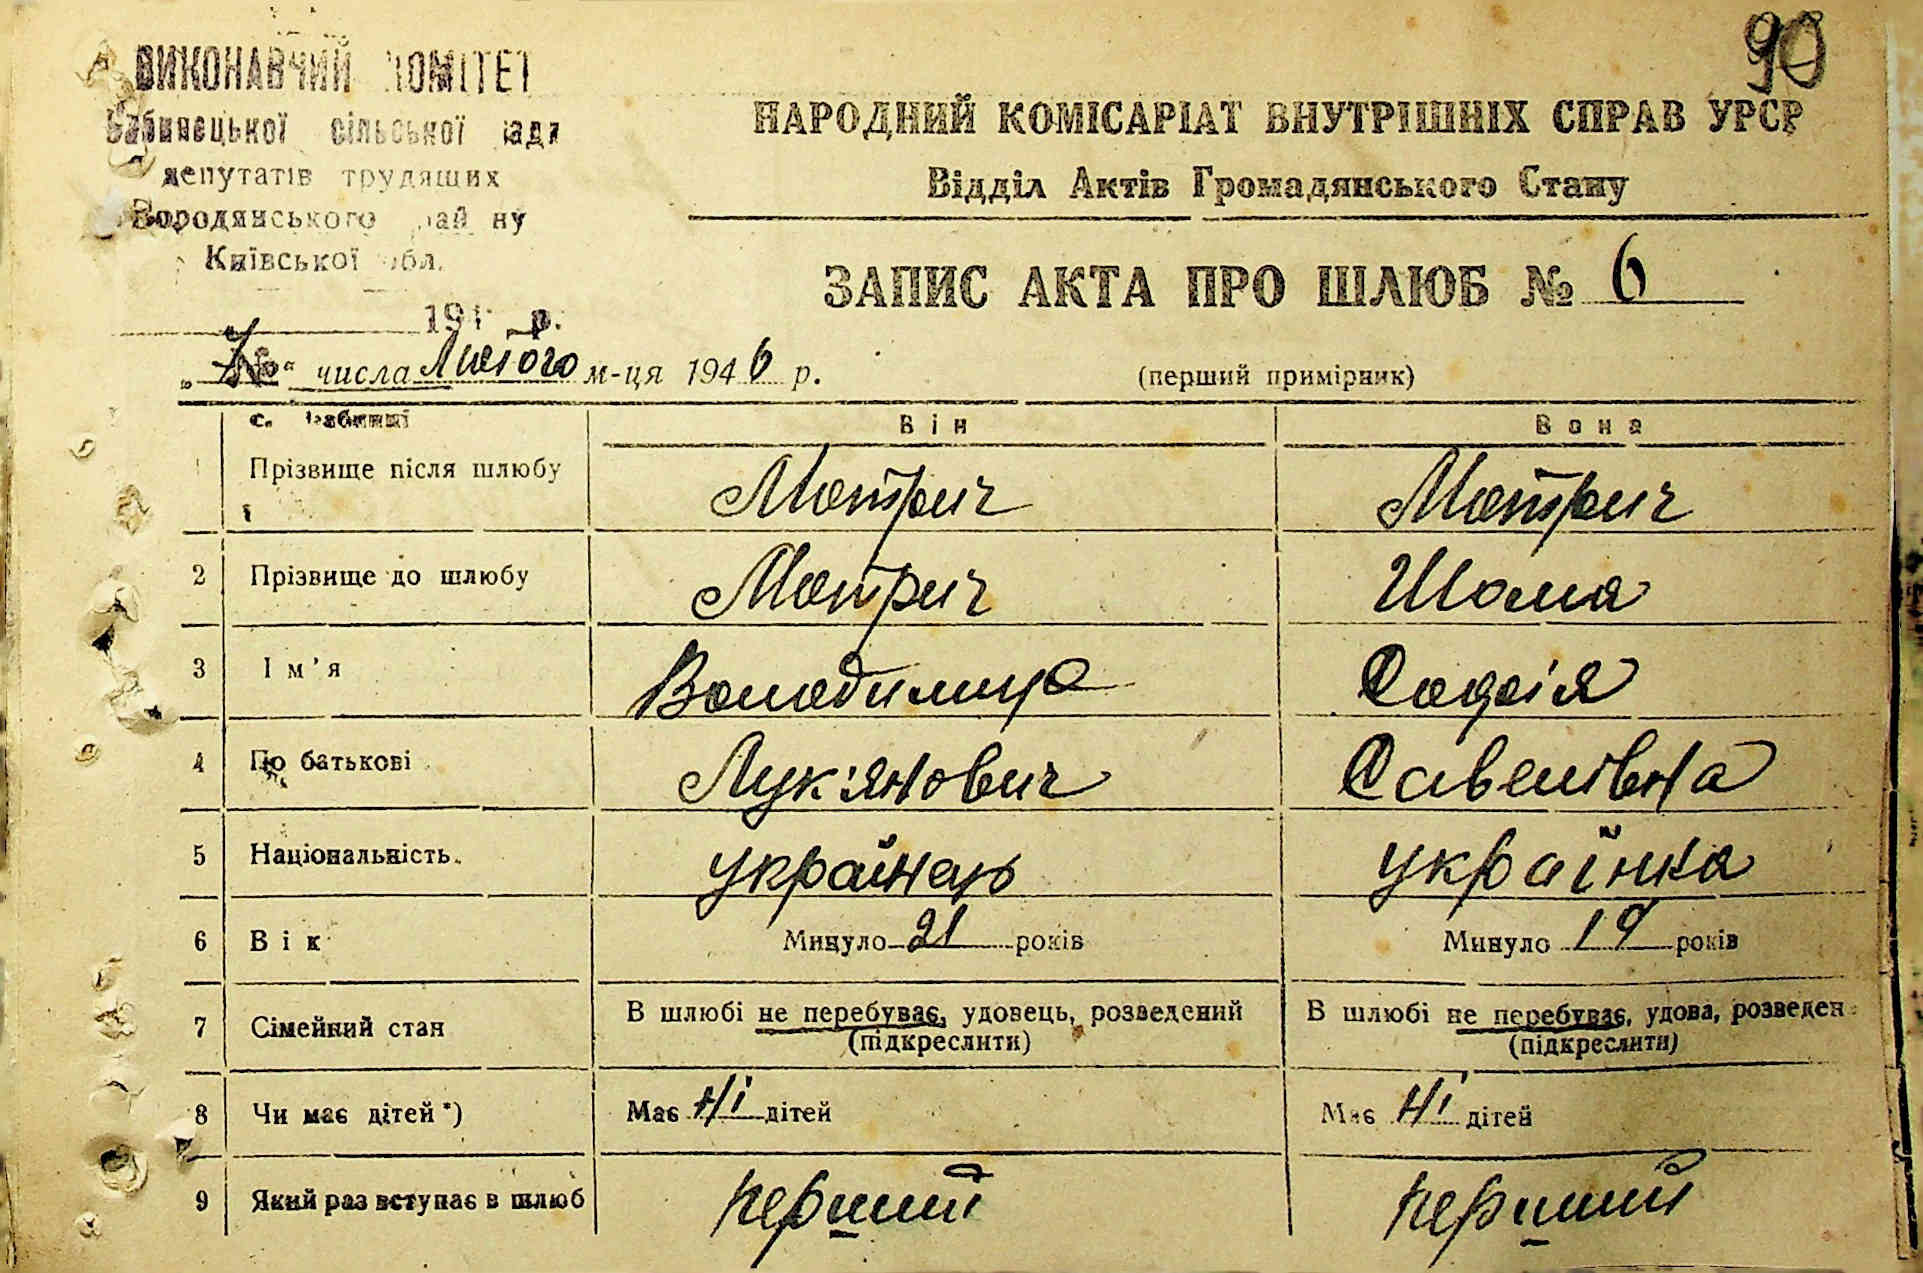 90
ВИКОНАВЧИЙ КОМІТЕТ
Бабинецької сільської ради
депутатів трудящих
Бородянського району
Київської обл.
194 р.
НАРОДНИЙ КОМІСАРІАТ ВНУТРІШНІХ СПРАВ УРСР
Відділ Актів Громадянського Стану
ЗАПИС АКТА ПРО ШЛЮБ № 6
„7“ числа Лютого м-ця 1946 р.
(перший примірник)
с. Бабинці Він Вона
1 Прізвище після шлюбу Мотрич Мотрич
2 Прізвище до шлюбу Мотрич Шома
3 Ім'я Володимир Софія
4 По батькові Лук'янович Савелівна
5 Національність українець українка
6 Вік Минуло 21 років Минуло 19 років
7 Сімейний стан В шлюбі не перебуває, удовець, розведений (підкреслити) В шлюбі не перебуває, удова, розведен (підкреслити)
8 Чи має дітей*) Має Ні дітей Має Ні дітей
9 Який раз вступає в шлюб перший перший